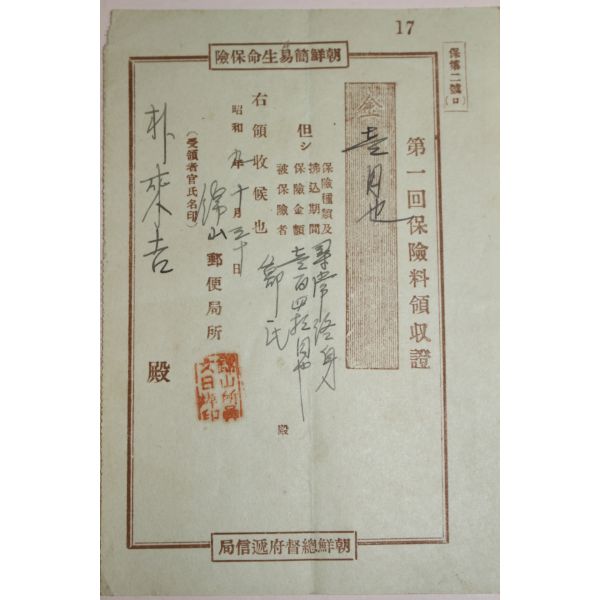 17
保第二號(ロ)
朝鮮簡易生命保險
第一回保險料領収證
金壹円也
但シ
保險種類及
拂込期間 尋常終身
保險金額 壹百四拾円
被保險者 氏 殿
右領收候也
昭和九年十月三十日
錦山郵便局所
(受領者官氏名印)
朴來吉 殿
朝鮮總督府遞信局